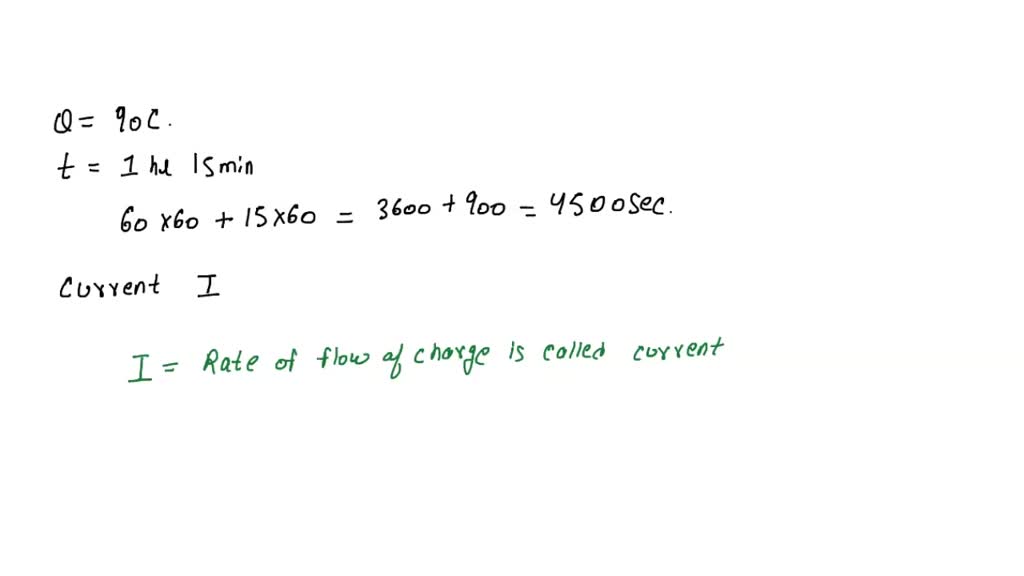 Q = 90C.
t = 1 hr 15min
60 x60 + 15x60 = 3600 + 900 = 4500sec.
Current I
I = Rate of flow of charge is called current